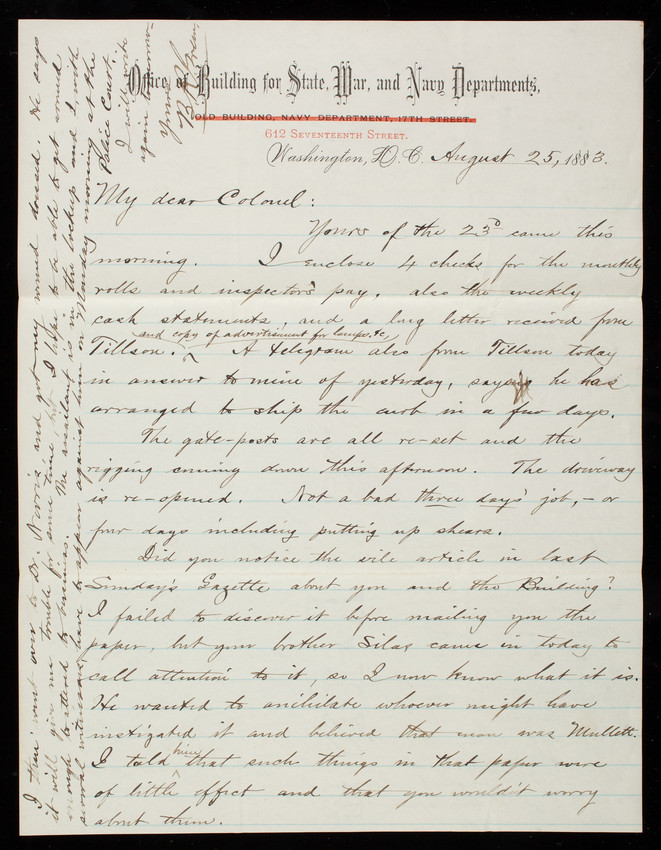 Office of Building for State, War, and Navy Departments,
OLD BUILDING, NAVY DEPARTMENT, 17TH STREET.
612 SEVENTEENTH STREET.
Washington, D. C. August 25, 1883.
My dear Colonel:
Yours of the 23d came this
morning. I enclose 4 checks for the monthly
rolls and inspector's pay, also the weekly
cash statements, and a long letter received from
and copy of advertisement for lamps, &c,
Tillson. A telegram also from Tillson today
in answer to mine of yesterday, says he has
arranged to ship the curb in a few days.
The gate-posts are all re-set and the
rigging coming down this afternoon. The driveway
is re-opened. Not a bad three days' job, - or
four days including putting up shears.
Did you notice the vile article in last
Sunday's Gazette about you and the Building?
I failed to discover it before mailing you the
paper, but your brother Silas came in today to
call attention to it, so I now know what it is.
He wanted to anihilate whoever might have
instigated it and believed that man was Mullett.
I told him that such things in that paper were
of little effect and that you wouldn't worry
about them.
I then went over to Dr. Norris and got my wound dressed. He says
it will give me trouble for some time but I hope to be able to get around
enough to attend to business. The assailant is in the lockup and I, with
several witnesses, have to appear against him on Monday morning at the
Police Court.
I will write
again tomorrow-
Yours,
B. R. Green